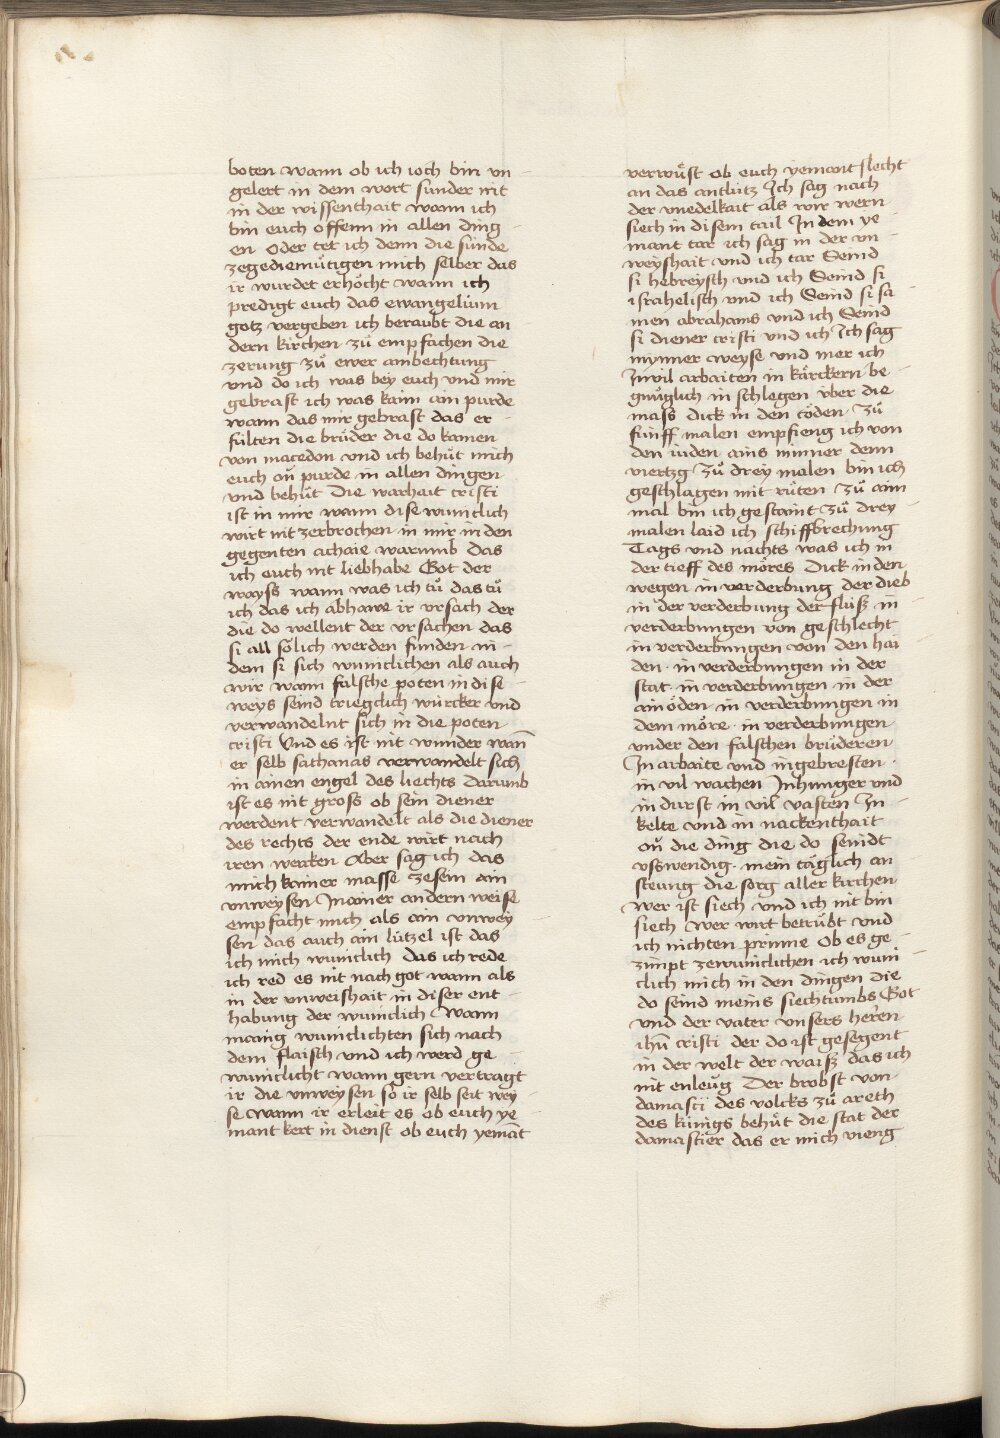 boten wann ob ich ioch bin vn
gelert in dem wort sunder nit
in der wissenthait wann ich
bin euch offenn in allen ding
en Oder tet ich denn die sünde
zegediemütigen mich selber das
ir wurdet erhöcht wann ich
predigt euch das ewangelium
gotz vergeben ich beraubt die an
dern kirchen zů empfachen die
zerung zů ewer ambechtung
vnd do ich was bey euch vnd mir
gebrast ich was kaim ain purde
wann das mir gebrast das er
fulten die brüder die do kamen
von macedon vnd ich behůt mich
euch on purde in allen dingen
vnd behůt Die warhait cristi
ist in mir wann dise wunnclich
wirt nit zerbrochen in mir in den
gegenten achaie warumb das
ich euch nit liebhabe Got der
wayss wann was ich tů das tů
ich das ich abhawe ir vrsach der
die do wellent der vrsachen das
si all sölich werden funden in
dem si sich wunnclichen als auch
wir wann falsche poten in dise
weys seind triegclich würcker vnd
verwandelnt sich in die poten
cristi Vnd es ist nit wunder wañ
er selb sathanas verwandelt sich
in ainen engel des liechts Darumb
ist es nit gross ob sein diener
werdent verwandelt als die diener
des rechts der ende wirt nach
iren wercken Aber sag ich das
mich kainer masse zesein ain
vnweysen In ainer andern weise
empfacht mich als ain vnwey
sen das auch ain lützel ist das
ich mich wunnclich das ich rede
ich red es nit nach got wann als
in der vnweishait in diser ent
habung der wunnclich Wann
manig wunnclichten sich nach
dem flaisch vnd ich werd ge
wunnclicht wann gern vertragt
ir die vnweysen so ir selb seit wey
se wann ir erleit es ob euch ye
mant kert in dienst ob euch yemāt
verwůst ob euch yemant slecht
an das antlütz Ich sag nach
der vnedelkait als wir wern
siech in disem tail In dem ye
mant tar ich sag in der vn
weyshait vnd ich tar Seind
si hebreysch vnd ich Seind si
israhelisch vnd ich Seind si sa
men abrahams vnd ich Seind
si diener cristi vnd ich Ich sag
mynner weyse vnd mer ich
In vil arbaiten in kärckern be
gnüglich in schlegen vber die
mass dick in den töden Zů
fünff malen empfieng ich von
den iuden ains minner denn
viertzg Zů drey malen bin ich
geschlagen mit růten Zů aim
mal bin ich gestaint Zů drey
malen laid ich schiffbrechung
Tags vnd nachts was ich in
der tieff des möres Dick in den
wegen in verderbung der dieb
in der verderbung der flüß in
verderbungen von geschlecht
in verderbungen von den hai
den in verderbungen in der
stat in verderbungen in der
ainöden in verderbungen in
dem möre in verderbungen
vnder den falschen brüderen
In arbaite vnd in gebresten
in vil wachen In hunger vnd
in durst in vil vasten In
kelte vnd in nackenthait
on die ding die do seindt
vsswendig mein täglich an
steung die sorg aller kirchen
wer ist siech vnd ich nit bin
siech wer wirt betrübt vnd
ich nichten prinne Ob es ge
zimpt zewunnclichen ich wunn
clich mich in den dingen die
do seind meins siechtumbs Got
vnd der vater vnsers herren
ihū cristi der do ist gesegent
in der welt der waiß das ich
nit enleug Der brobst von
damasti des volcks zů areth
des künigs behůt die stat der
damastier das er mich vieng